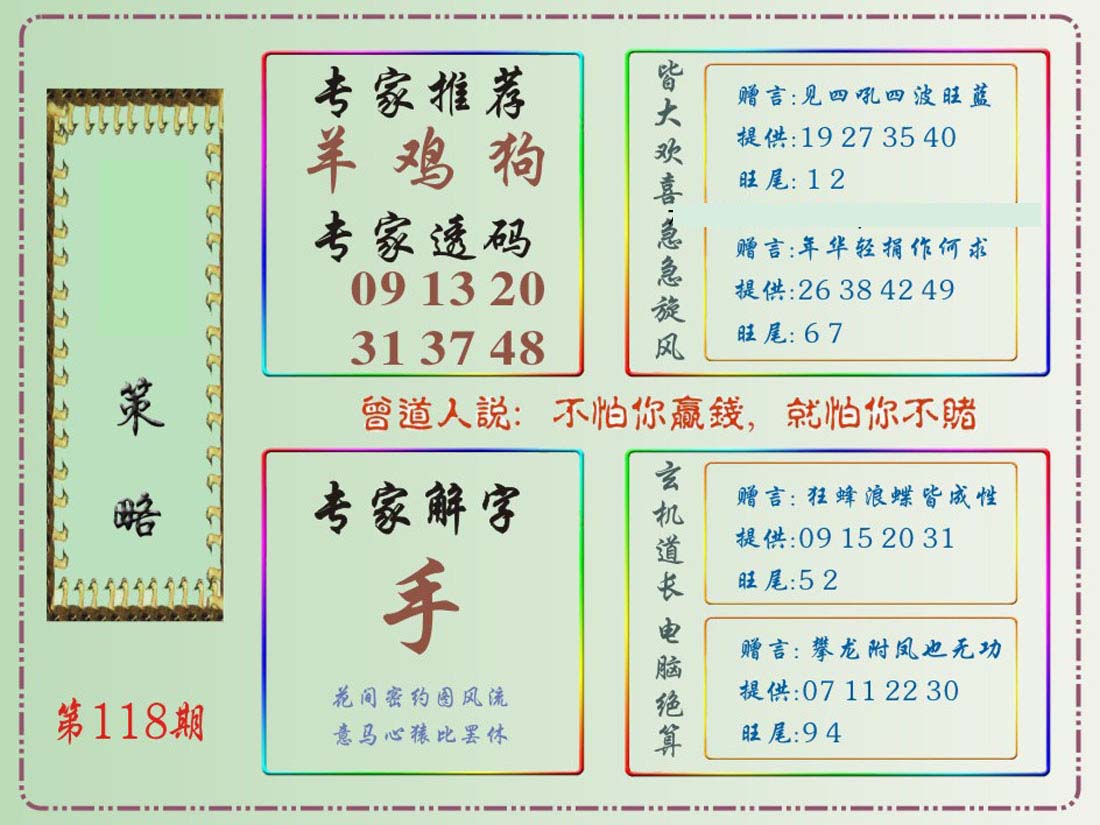 策
略
第118期
专家推荐
羊 鸡 狗
专家透码
09 13 20
31 37 48
皆大欢喜
赠言:见四吼四波旺蓝
提供:19 27 35 40
旺尾: 1 2
急急旋风
赠言:年华轻捐作何求
提供:26 38 42 49
旺尾: 6 7
曾道人説: 不怕你贏錢, 就怕你不賭
专家解字
手
花间密约图风流
意马心猿比罢休
玄机道长
赠言: 狂蜂浪蝶皆成性
提供:09 15 20 31
旺尾:5 2
电脑绝算
赠言: 攀龙附凤也无功
提供:07 11 22 30
旺尾:9 4